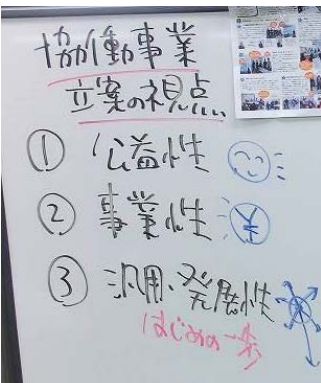 協働事業
立案の視点
① 公益性
② 事業性 ¥
③ 汎用・発展性
はじめの一歩